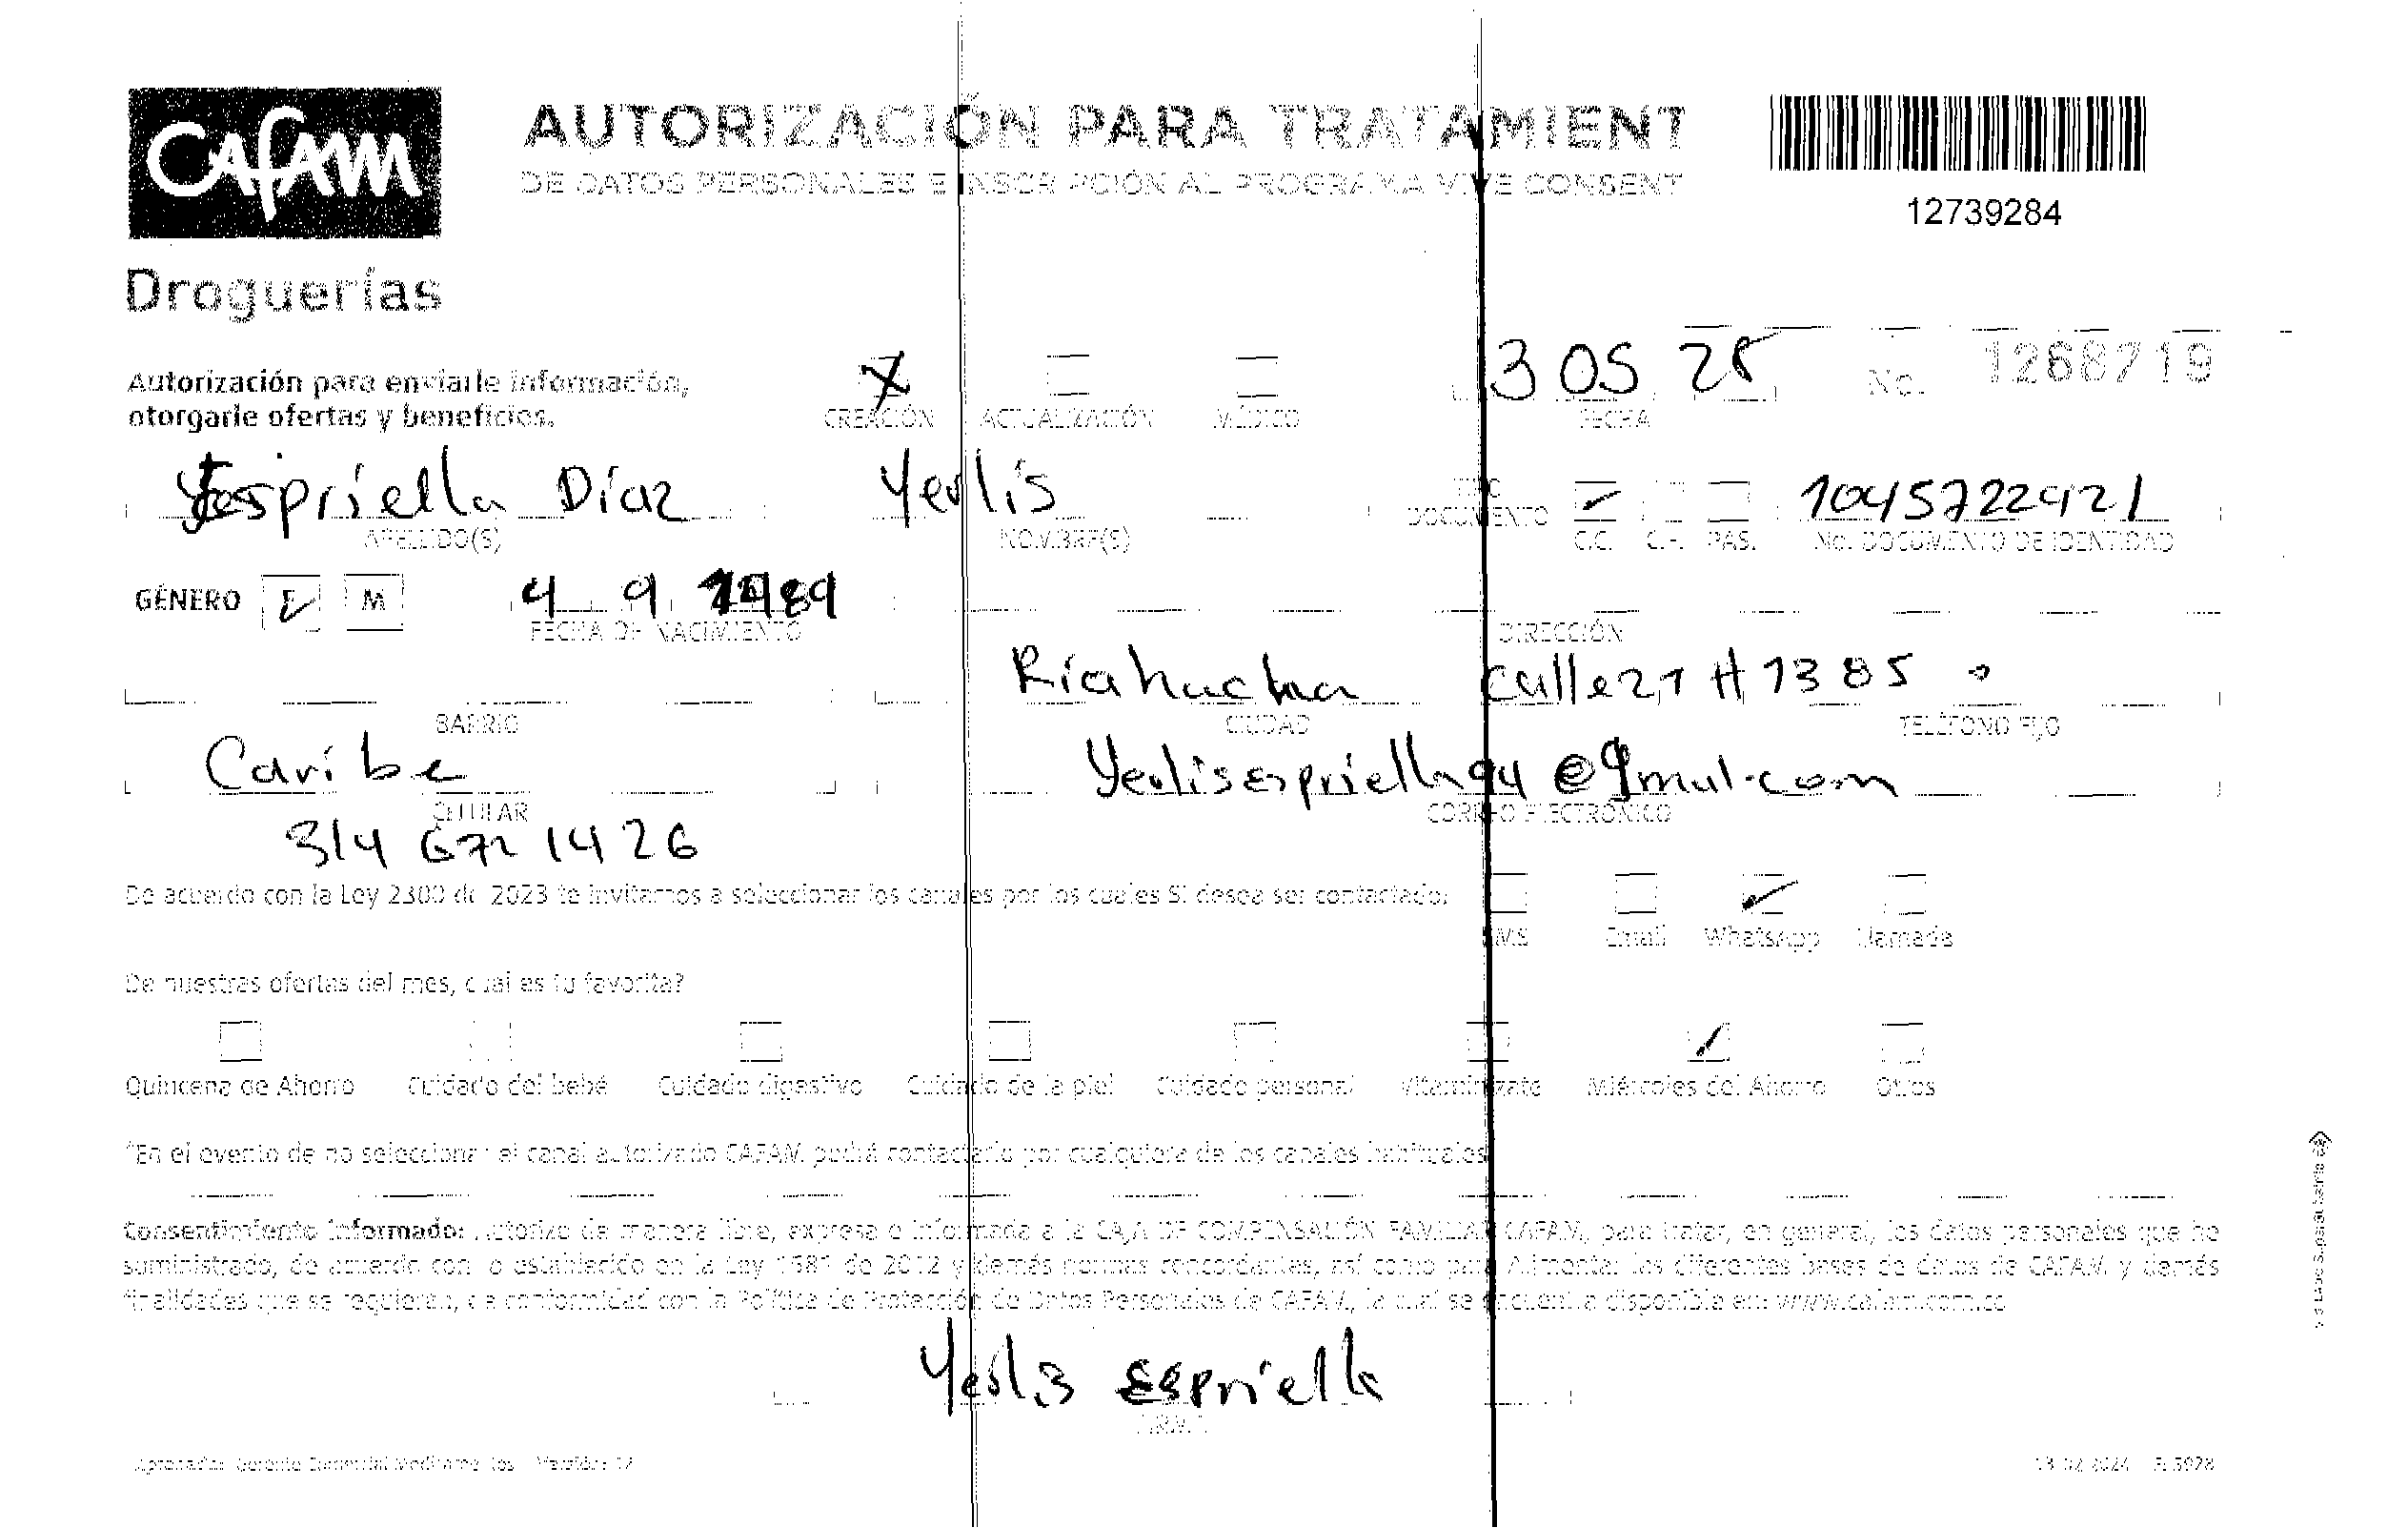 CAFAM
Droguerías
AUTORIZACIÓN PARA TRATAMIENT
DE DATOS PERSONALES E INSCRIPCIÓN AL PROGRAMA VIVE CONSENT
12739284
Autorización para enviarle información,
otorgarle ofertas y beneficios.
X
CREACIÓN ACTUALIZACIÓN MÉDICO
3 05 25
FECHA
No. 1268719
Espriella Díaz
APELLIDO(S)
Yeslis
NOMBRE(S)
TIPO DOCUMENTO
C.C. C.E. PAS.
1045722421
No. DOCUMENTO DE IDENTIDAD
GÉNERO F M
4 9 1989
FECHA DE NACIMIENTO
DIRECCIÓN
Riahacha calle 21 # 13 85
BARRIO CIUDAD TELÉFONO FIJO
Caribe
CELULAR CORREO ELECTRÓNICO
314 672 1426
De acuerdo con la Ley 2300 de 2023 te invitamos a seleccionar los canales por los cuales SI desea ser contactado:
SMS Email WhatsApp Llamada
De nuestras ofertas del mes, cual es tu favorita?
Quincena de Ahorro Cuidado del bebé Cuidado digestivo Cuidado de la piel Cuidado personal Vitaminízate Miércoles del Ahorro Otros
*En el evento de no seleccionar el canal autorizado CAFAM podrá contactarlo por cualquiera de los canales habituales
Consentimiento informado: Autorizo de manera libre, expresa e informada a la CAJA DE COMPENSACIÓN FAMILIAR CAFAM, para tratar, en general, los datos personales que he
suministrado, de acuerdo con lo establecido en la Ley 1581 de 2012 y demás normas concordantes, así como para Alimentar las diferentes bases de datos de CAFAM y demás
finalidades que se requieran, de conformidad con la Política de Protección de Datos Personales de CAFAM, la cual se encuentra disponible en: www.cafam.com.co
Yeslis Espriella
FIRMA